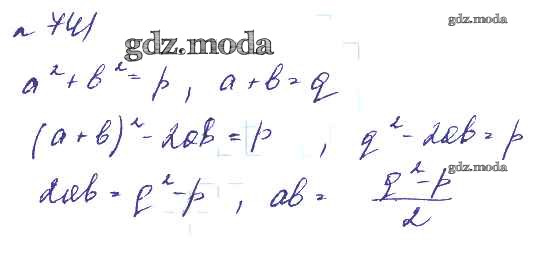 № 741
gdz.moda
gdz.moda
a² + b² = p, a + b = q
(a + b)² - 2ab = p, q² - 2ab = p
gdz.moda
2ab = q² - p, ab = (q² - p)/2